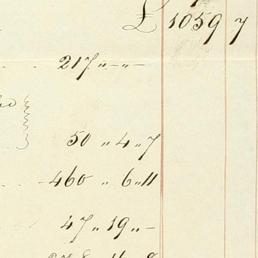 £ 1059 7
217 " - " -
50 " 4 " 7
460 " 6 " 11
47 " 19 " -